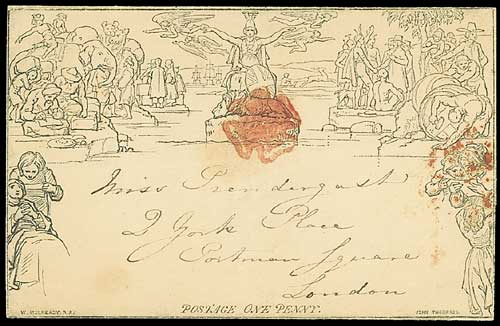 Miss Prendergast
2 York Place
Portman Square
London
W. MULREADY, R.A.
POSTAGE ONE PENNY.
JOHN THOMPSON